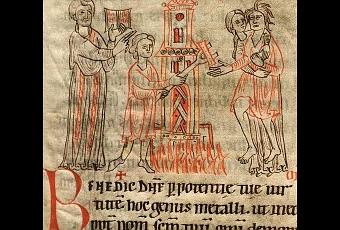 BENEDIC DN̄E ꝑ potentie tue uir
tutē. hoc genus metalli. ut
nom̄ sc̄m tuū